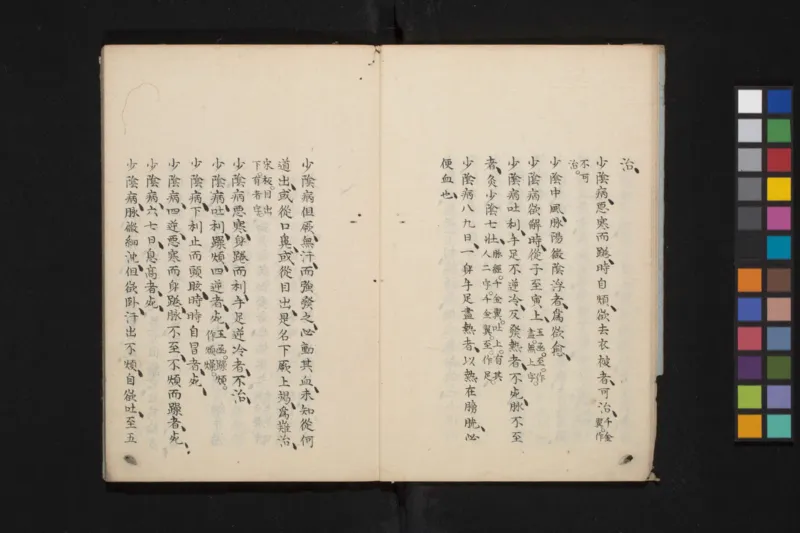 治、
少陰病、惡寒而踡、時自煩、欲去衣被者、可治、千金翼作不可治。
少陰中風、脉陽微陰浮者、爲欲愈、
少陰病欲解時、從子至寅上、玉函。至作盡。無上字。
少陰病、吐利、手足不逆冷、反發熱者、不死、脉不至
者、灸少陰七壯、脉經。千金翼。吐上。有其人二字。千金翼。至作足。
少陰病、八九日、一身手足盡熱者、以熱在膀胱、必
便血也、
少陰病、但厥無汗、而強發之、必動其血、未知從何
道出、或從口鼻、或從目出、是名下厥上竭、爲難治、
宋板。目出下。有者字。
少陰病、惡寒身踡而利、手足逆冷者、不治、
少陰病、吐利躁煩、四逆者死、玉函。躁煩。作煩躁
少陰病、下利止而頭眩、時時自冒者死、
少陰病、四逆惡寒而身踡、脉不至、不煩而躁者死、
少陰病、六七日、息高者死、
少陰病、脉微細沈、但欲臥、汗出不煩、自欲吐、至五